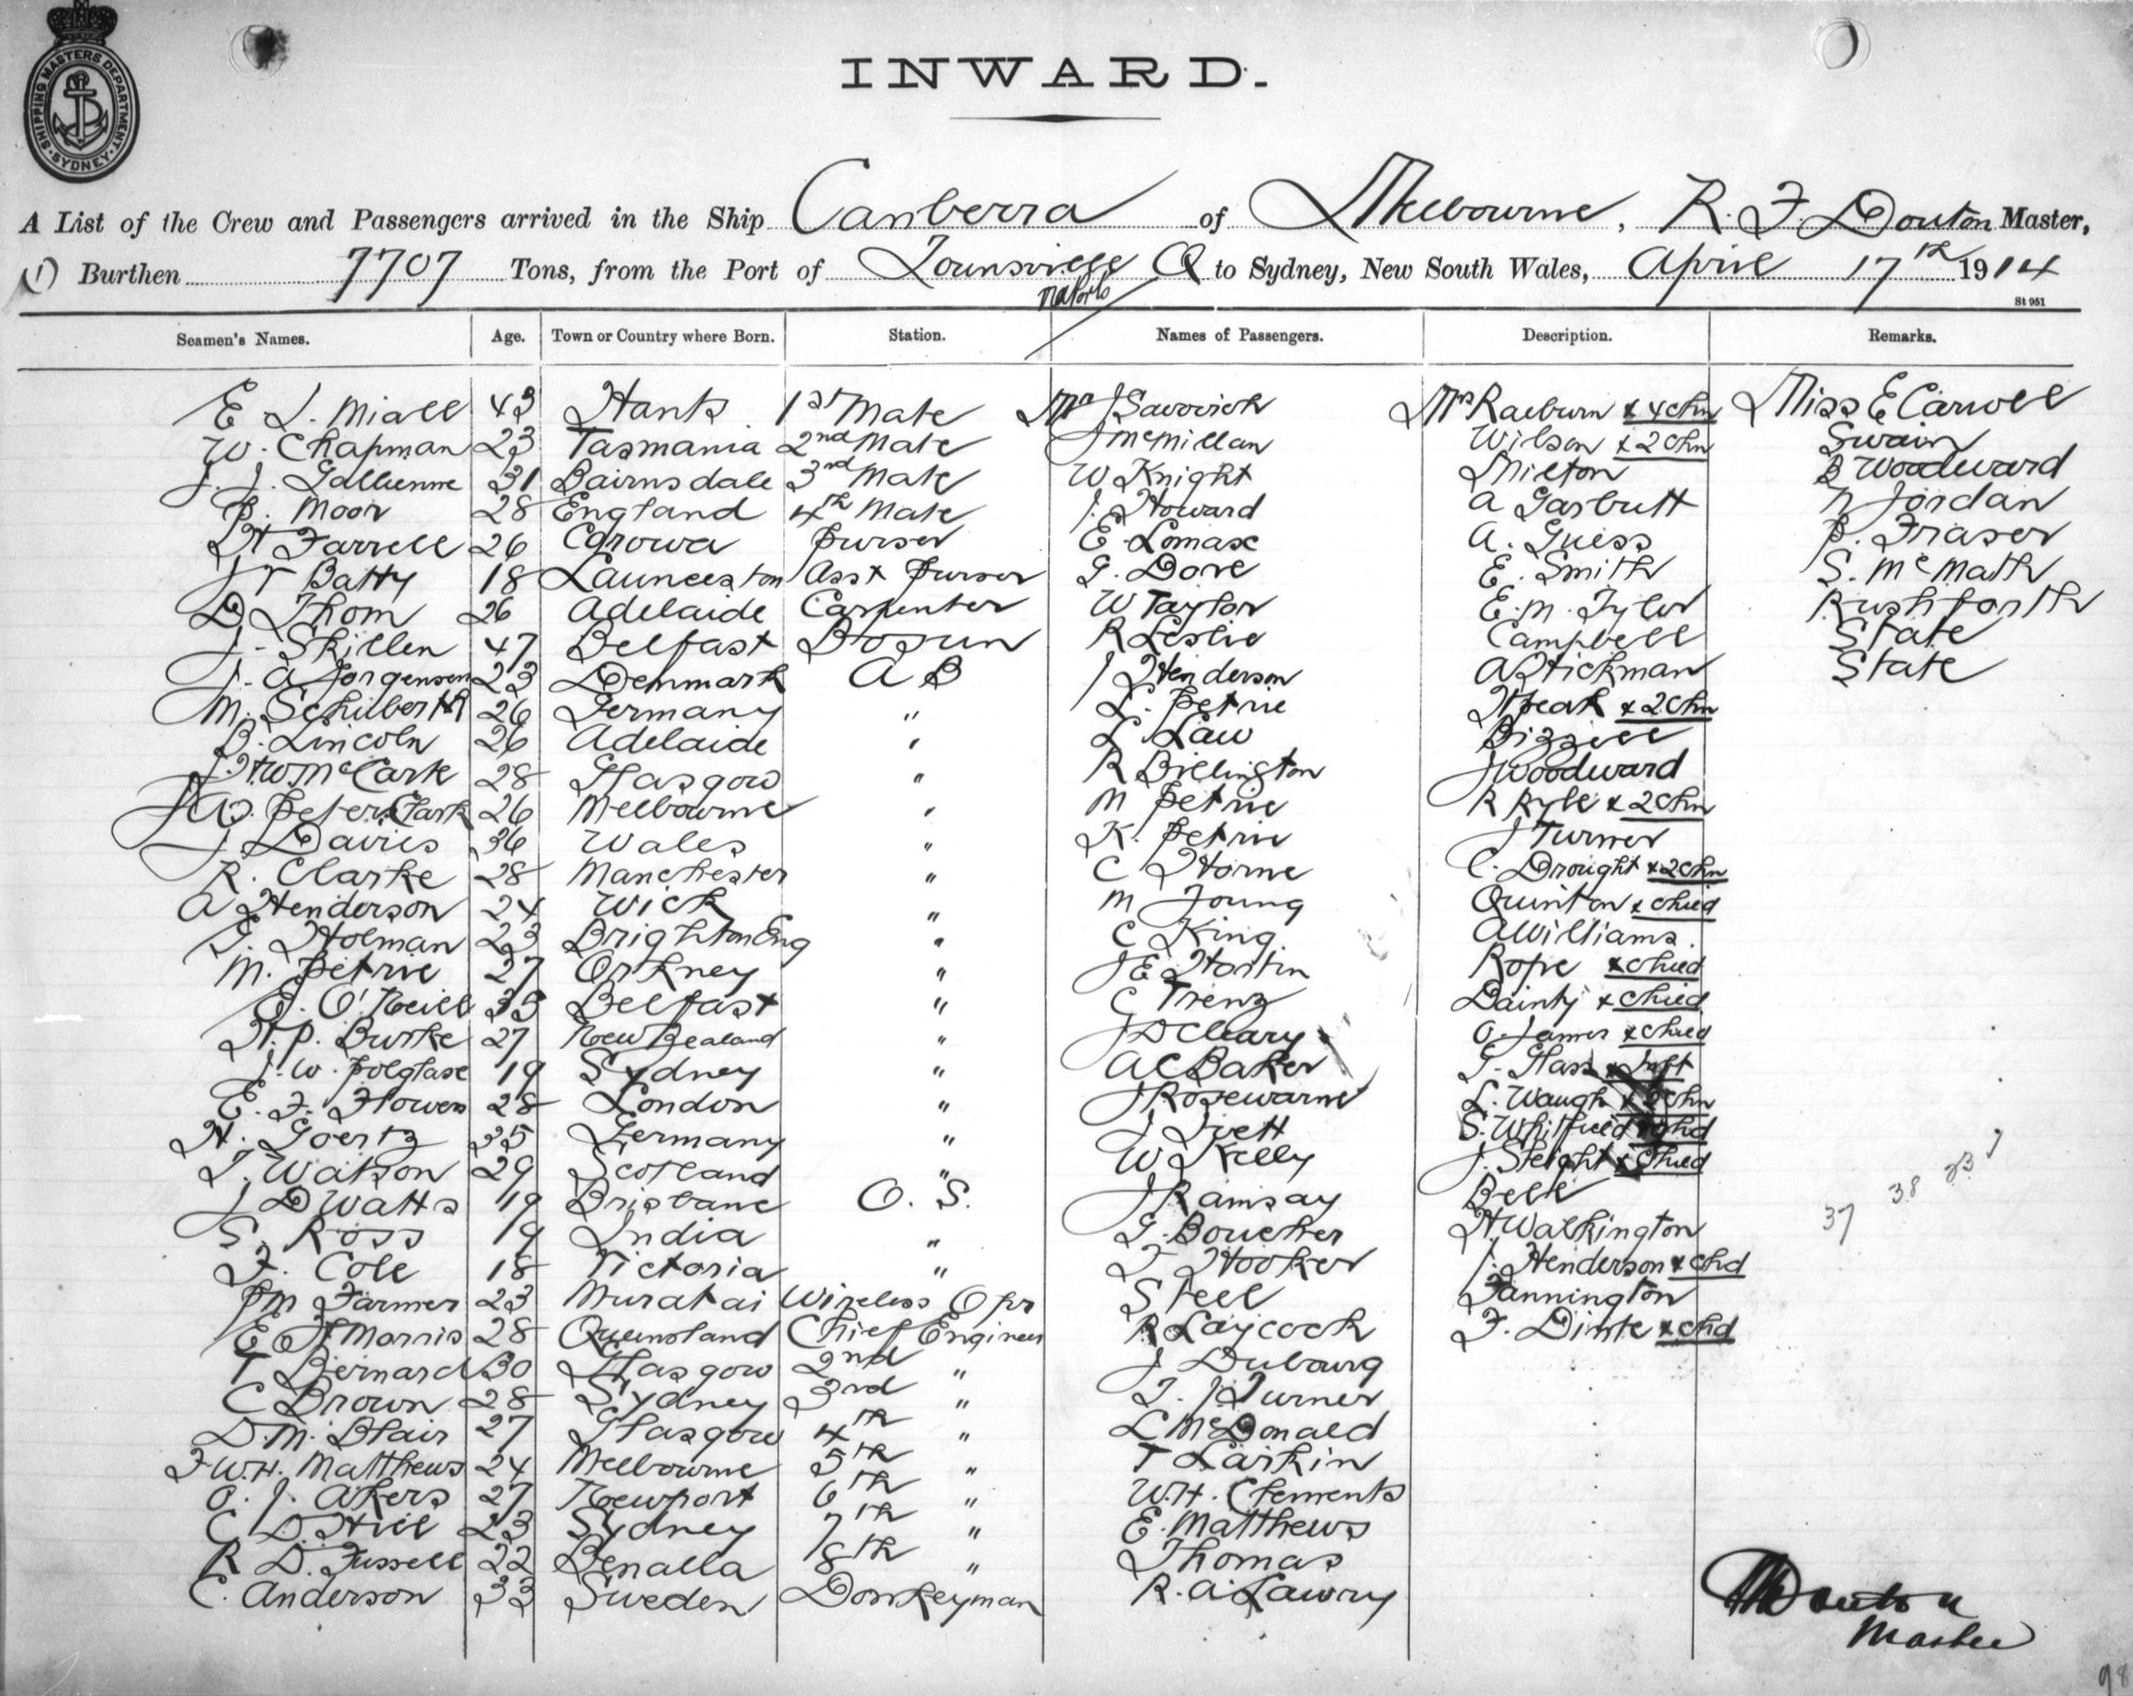 SHIPPING MASTERS DEPARTMENT · SYDNEY ·
INWARD.
A List of the Crew and Passengers arrived in the Ship Canberra of Melbourne, R. F. Douton Master,
(1) Burthen 7707 Tons, from the Port of Q to Sydney, New South Wales, April 17th 1914
St 951
Seamen's Names. Age. Town or Country where Born. Station. Names of Passengers. Description. Remarks.
E L. Miall 43 Hants 1st Mate Mr J Savovich Mrs Raeburn & 4 Chn Miss E Carwell
W. Chapman 23 Tasmania 2nd Mate J McMillan Wilson & 2 Chn Swain
J. J. Gallienne 31 Bairnsdale 3rd Mate W Knight Milton B Woodward
P. Moor 28 England 4th Mate J. Howard A Garbutt N Jordan
H Farrell 26 Corowa Purser E. Lomax A. Guiss P. Fraser
J T Batty 18 Launceston Asst Purser G. Dove E. Smith S. McMath
D Thom 26 Adelaide Carpenter W Taylor E. M. Tyler Rushforth
J. Skillen 47 Belfast Bosun R Leslie Campbell State
J. A Jorgensen 23 Denmark A B J Henderson A Hickman State
M. Schuberth 26 Germany " L. Petrie H Peak & 2 Chn
B. Lincoln 26 Adelaide " L. Law Bizzell
J. H W McCark 28 Glasgow " R Billington J Woodward
W. Peter Clark 26 Melbourne " M Petrie R Ryle & 2 Chn
J. Davies 36 Wales " K. Petrie J Turner
R. Clarke 28 Manchester " C Horne C. Drought & 2 Chn
A Henderson 24 Wick " M Young Quinton & Child
G. Holman 23 Brighton Eng " C King A Williams.
M. Petrie 27 Orkney " J E Hortin Rope & Child
J. O'Neill 35 Belfast " C Trenz Dainty & Child
H. P. Burke 27 New Zealand " J D Cleary O. James & Child
J. W. Polglase 19 Sydney " A C Baker G. Glass & Inft
E. F. Flowers 28 London " J Rosewarne L. Waugh & Chn
H. Goertz 35 Germany " J Ivett S. Whitfield & Chd
J. Watson 29 Scotland " W Kelly J. Sleight & Child
J D Watts 19 Brisbane O. S. J Ramsay Bell
S. Ross 19 India " G. Boucher H Walkington
F. Cole 18 Victoria " F Hooker J. Henderson & Chd
P M Farmer 23 Muratai Wireless Opr Steel Fannington
E O H Morris 28 Queensland Chief Engineer R Laycock F. Dinte & Chd
T Bernard 30 Glasgow 2nd " J Dubourg
C Brown 28 Sydney 3rd " T. J Turner
D. M. Blair 27 Glasgow 4th " L McDonald
F. W. H. Matthews 24 Melbourne 5th " T Larkin
O. J. Akers 27 Newport 6th " W. H. Clements
C D. Hill 23 Sydney 7th " E. Matthews
R D. Fussell 22 Benalla 8th " Thomas
C. Anderson 33 Sweden Donkeyman R. A. Lawry
37 38 23
Douton
Master
98